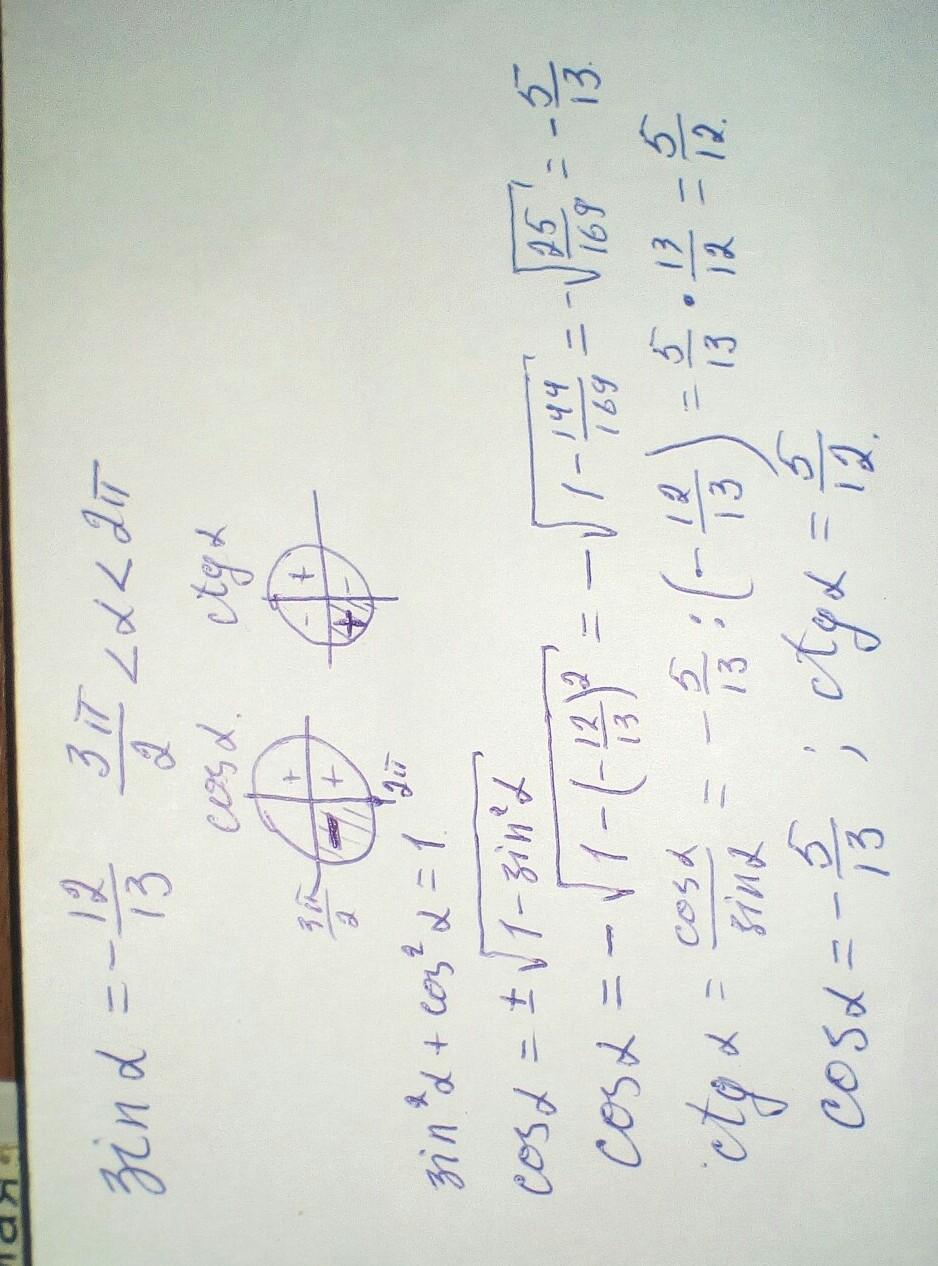 sin α = - 12/13   3π/2 < α < 2π
cos α.   ctg α
+ + - 3π/2 2π   - + + -
sin²α + cos²α = 1
cos α = ± √(1 - sin²α)
cos α = - √(1 - (-12/13)²) = - √(1 - 144/169) = - √(25/169) = - 5/13.
ctg α = cos α/sin α = - 5/13 : (- 12/13) = 5/13 · 13/12 = 5/12.
cos α = - 5/13 ; ctg α = 5/12.